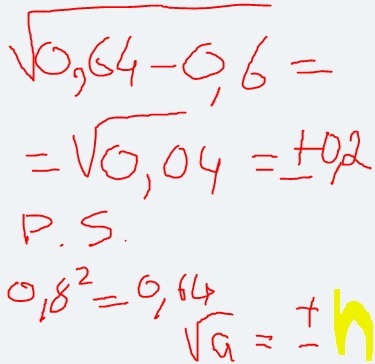 √0,64-0,6 =
= √0,04 = ±0,2
P.S.
0,8² = 0,64
√a = ± h